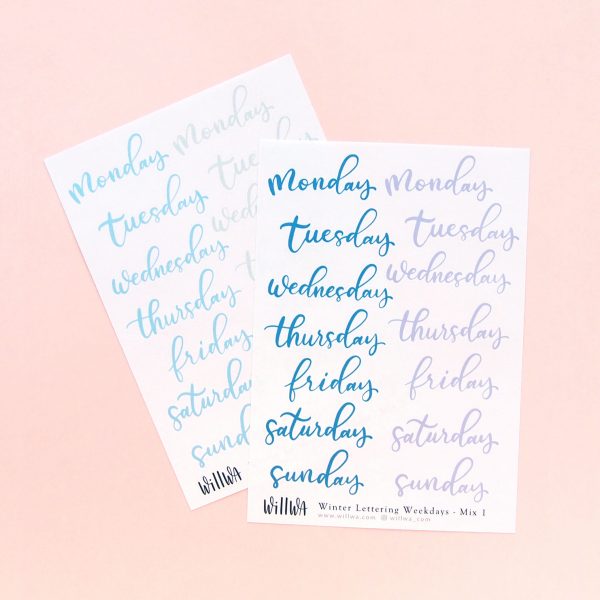 monday monday
tuesday tuesday
wednesday wednesday
thursday thursday
friday friday
saturday saturday
sunday sunday
WillWA Winter Lettering Weekdays - Mix 1
www.willwa.com willwa_com
monday monday
tuesday
wednesday
thursday
friday
saturday
WillWA